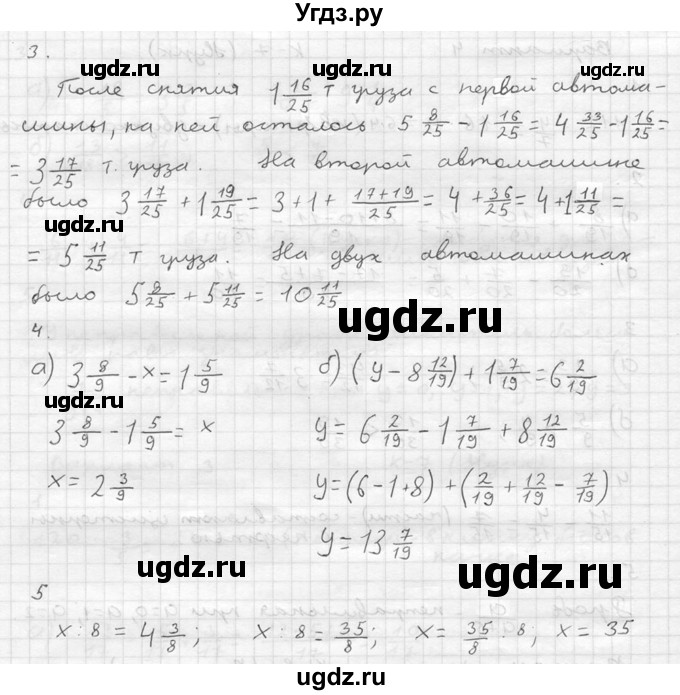 Угдз.ру
3.
После снятия 1 16/25 т груза с первой автома-
шины, на ней осталось 5 8/25 - 1 16/25 = 4 33/25 - 1 16/25 =
= 3 17/25 т. груза. На второй автомашине
было 3 17/25 + 1 19/25 = 3 + 1 + (17+19)/25 = 4 + 36/25 = 4 + 1 11/25 =
= 5 11/25 т груза. На двух автомашинах
было 5 8/25 + 5 11/25 = 10 11/25
4.
а) 3 8/9 - x = 1 5/9
3 8/9 - 1 5/9 = x
x = 2 3/9
б) (y - 8 12/19) + 1 7/19 = 6 2/19
y = 6 2/19 - 1 7/19 + 8 12/19
y = (6 - 1 + 8) + (2/19 + 12/19 - 7/19)
y = 13 7/19
5
x : 8 = 4 3/8; x : 8 = 35/8; x = 35/8 · 8; x = 35
ugdz.ru
ugdz.ru
ugdz.ru
ugdz.ru
ugdz.ru
ugdz.ru
ugdz.ru
ugdz.ru
ugdz.ru
ugdz.ru
ugdz.ru